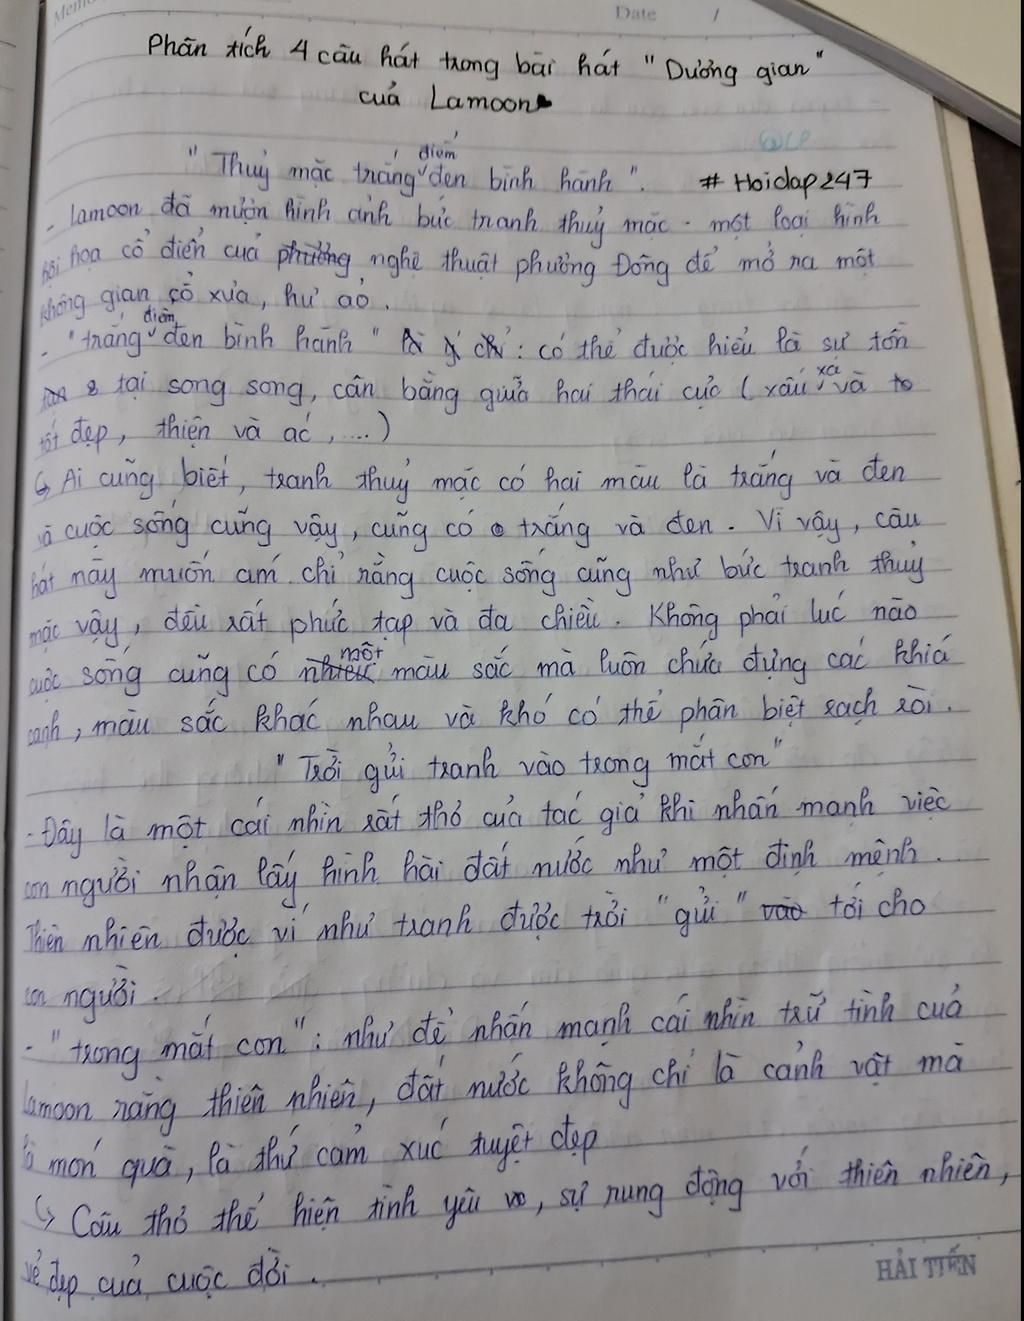 Memo
Date /
Phân tích 4 câu hát trong bài hát "Dương gian"
của Lamoon
@LP
"Thuỷ mặc trắng điểm đen bình hành". # Hoidap247
- Lamoon đã mượn hình ảnh bức tranh thuỷ mặc - một loại hình
hội họa cổ điển của phương nghệ thuật phương Đông để mở ra một
không gian cổ xưa, hư ảo.
- "trắng điểm đen bình hành" là ý chỉ: có thể được hiểu là sự tồn
tại song song, cân bằng giữa hai thái cực (xấu xa và
tốt đẹp, thiện và ác, ....)
↳ Ai cũng biết, tranh thuỷ mặc có hai màu là trắng và đen
và cuộc sống cũng vậy, cũng có trắng và đen. Vì vậy, câu
hát này muốn ám chỉ rằng cuộc sống cũng như bức tranh thuỷ
mặc vậy, đều rất phức tạp và đa chiều. Không phải lúc nào
cuộc sống cũng có nhiều một màu sắc mà luôn chứa đựng các khía
cạnh, màu sắc khác nhau và khó có thể phân biệt rạch ròi.
"Trời gửi tranh vào trong mắt con"
- Đây là một cái nhìn rất thơ của tác giả khi nhấn mạnh việc
con người nhận lấy hình hài đất nước như một định mệnh.
Thiên nhiên được ví như tranh được trời "gửi" vào tới cho
con người.
- "trong mắt con": như để nhấn mạnh cái nhìn trữ tình của
Lamoon rằng thiên nhiên, đất nước không chỉ là cảnh vật mà
là món quà, là thứ cảm xúc tuyệt đẹp
↳ Câu thơ thể hiện tình yêu, sự rung động với thiên nhiên,
vẻ đẹp của cuộc đời.
HẢI TIẾN